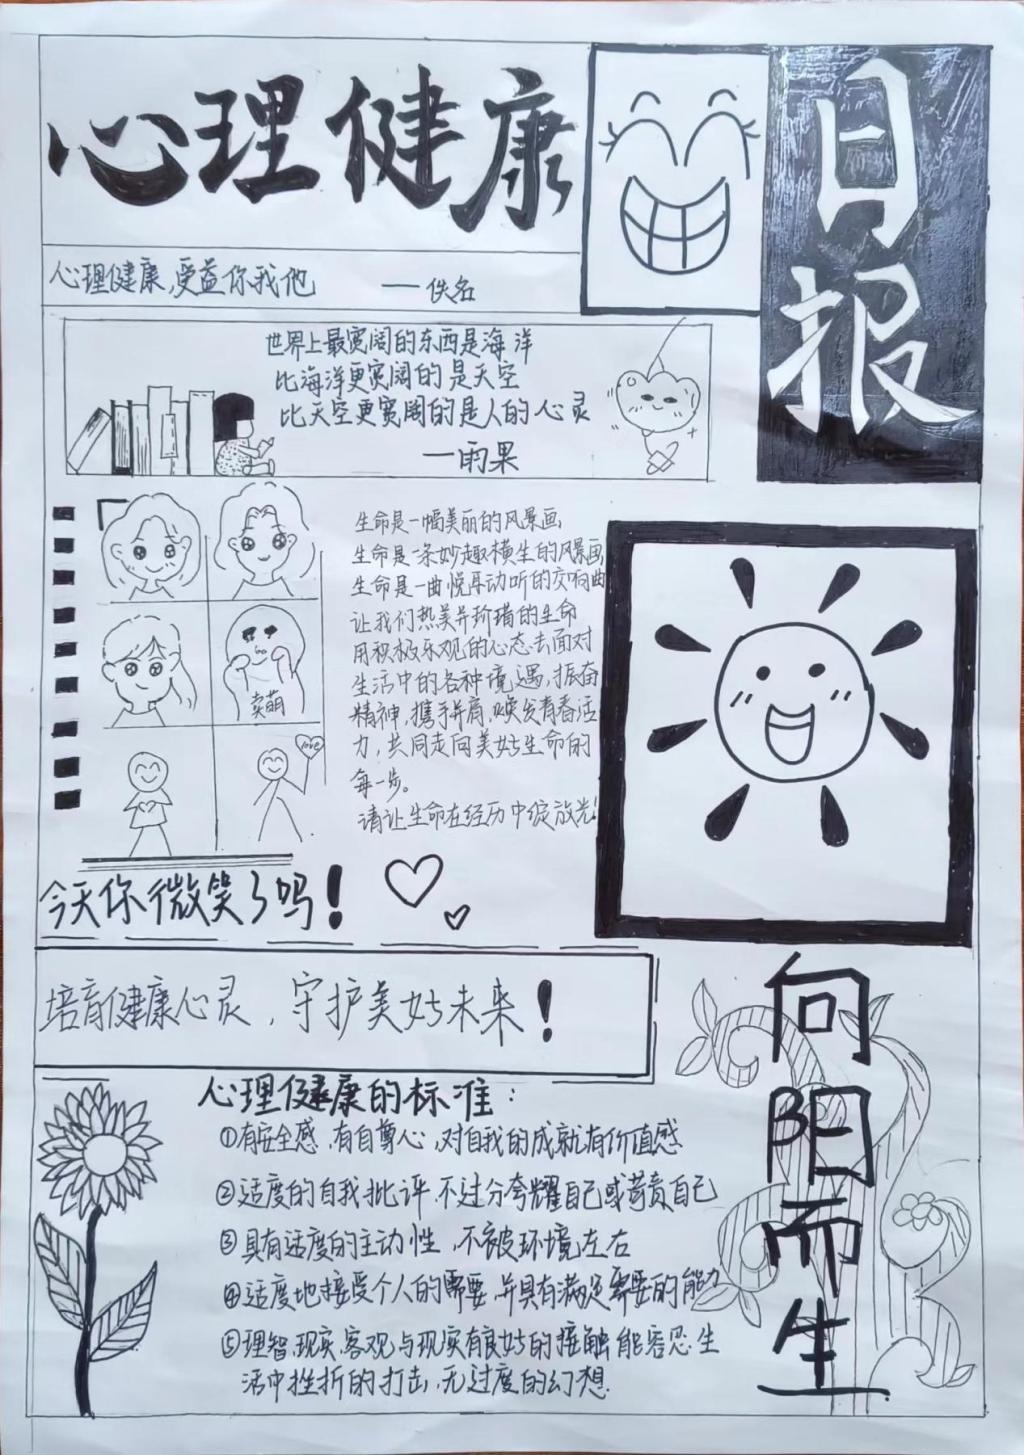 心理健康
日报
心理健康,受益你我他 ——佚名
世界上最宽阔的东西是海洋
比海洋更宽阔的是天空
比天空更宽阔的是人的心灵
——雨果
卖萌
love
生命是一幅美丽的风景画
生命是一条妙趣横生的风景画
生命是一曲悦耳动听的交响曲
让我们热美并珍惜的生命
用积极乐观的心态去面对
生活中的各种境遇,振奋
精神,携手并肩,焕发青春活
力,共同走向美好生命的
每一步。
请让生命在经历中绽放光!
今天你微笑了吗!
培育健康心灵,守护美好未来!
向阳而生
心理健康的标准:
①有安全感,有自尊心,对自我的成就有价值感
②适度的自我批评,不过分夸耀自己或苛责自己
③具有适度的主动性,不被环境左右
④适度地接受个人的需要,并具有满足需要的能力
⑤理智,现实,客观与现实有良好的接触,能容忍生
活中挫折的打击,无过度的幻想